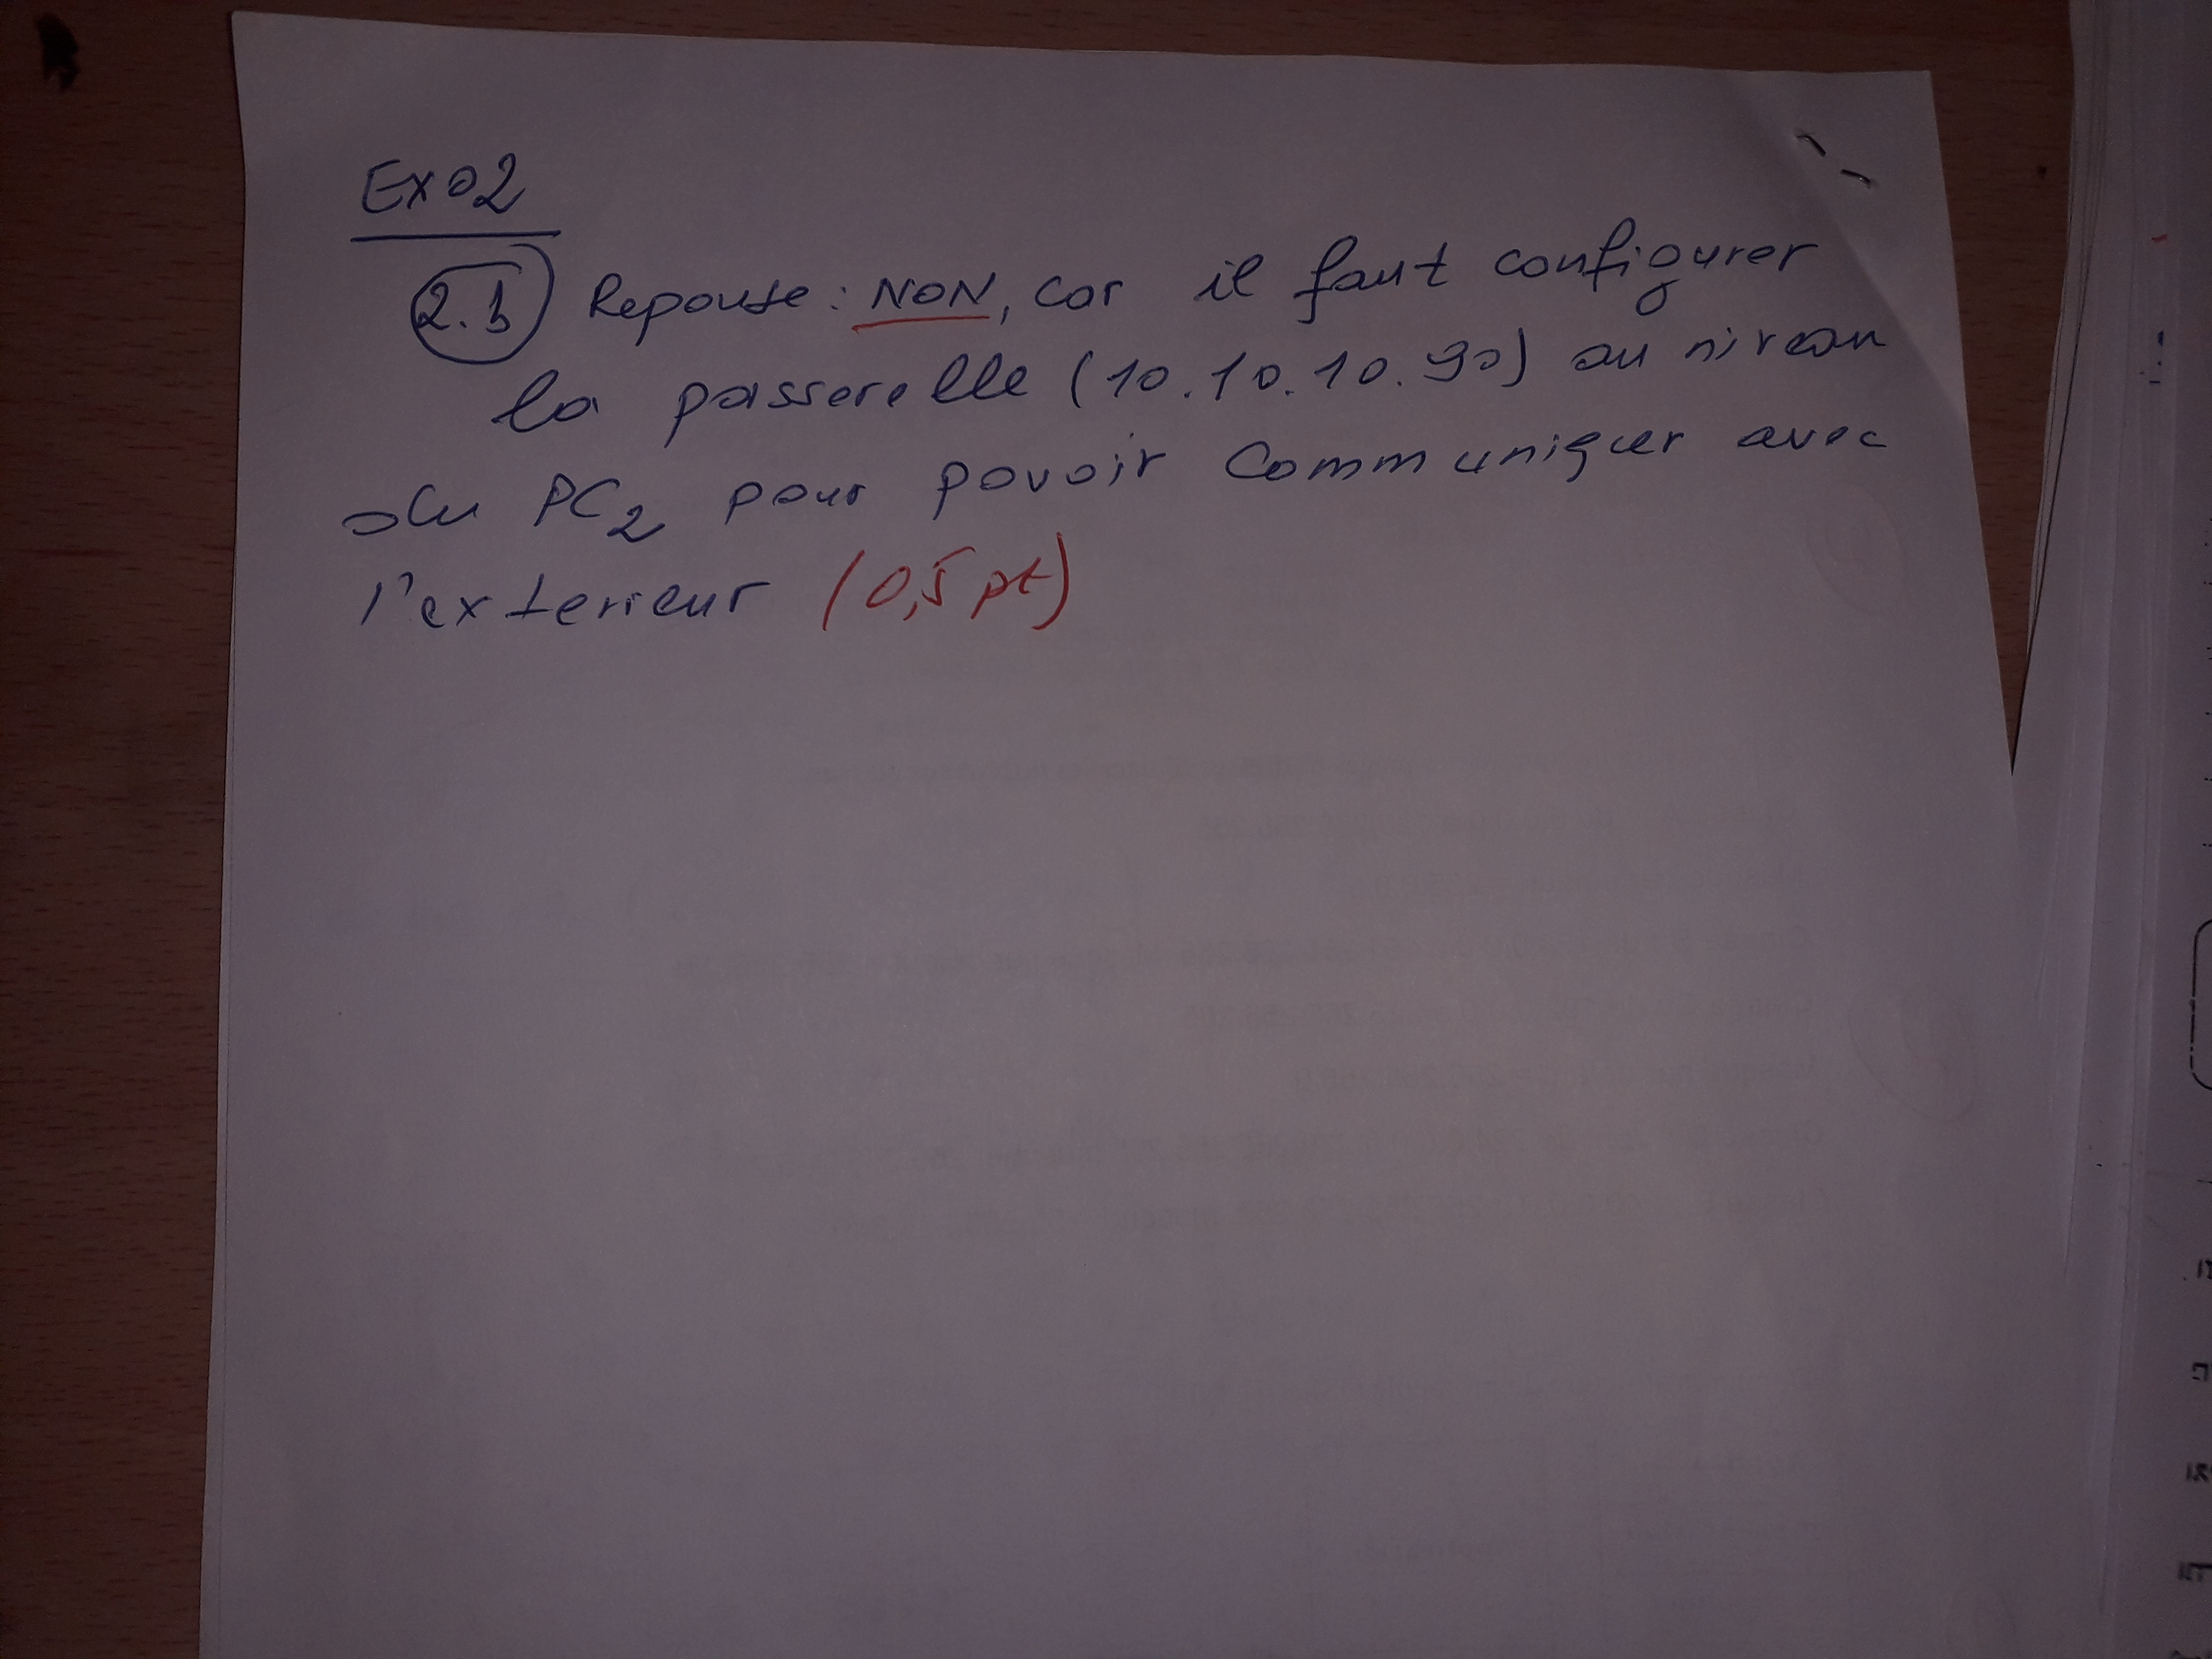 Exo2
2.b) Reponse : NON, car il faut configurer
la passerelle (10.10.10.90) au niveau
du PC2 pour povoir Communiquer avec
l'exterieur (0,5 pt)